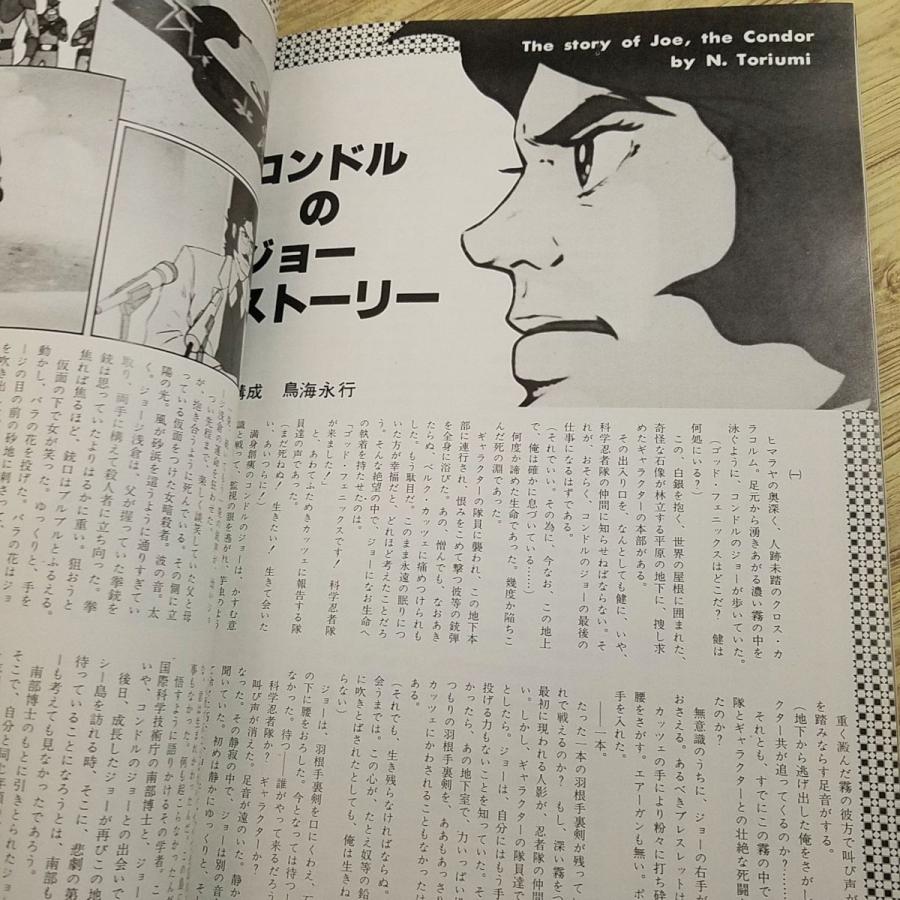 The story of Joe, the Condor
by N. Toriumi
コンドル
の
ジョー
ストーリー
構成　鳥海永行
㈠
ヒマラヤの奥深く、人跡未踏のクロス・カ
ラコルム。足元から湧きあがる濃い霧の中を
泳ぐように、コンドルのジョーが歩いていた。
（ゴッド・フェニックスはどこだ？　健は
何処にいる？）
この、白銀を抱く、世界の屋根に囲まれた、
奇怪な石像が林立する平原の地下に、捜し求
めたギャラクターの本部がある。
その出入り口を、なんとしても健に、いや、
科学忍者隊の仲間に知らせねばならない。そ
れが、おそらく、コンドルのジョーの最後の
仕事になるはずである。
（それでいい。その為に、今なお、この地上
で、俺は確かに息づいている……）
何度か諦めた生命であった。幾度か陥ちこ
んだ死の淵であった。
ギャラクターの隊員に襲われ、この地下本
部に連行され、恨みをこめて撃つ彼等の銃弾
を全身に浴びた。あの、憎んでも、なおあき
たらぬ、ベルク・カッツェに痛めつけられも
した。もう駄目だ。このまま永遠の眠りにつ
いた方が幸福だと、どれほど考えたことだろ
う。そんな絶望の中で、ジョーになお生命へ
の執着を持たせたのは。
「ゴッド・フェニックスです！　科学忍者隊
が来ました！」
と、あわてふためきカッツェに報告する隊
員達の声であった。
（まだ死ねぬ！　生きたい！　生きて会いた
い、あいつらに！）
満身創痍のコンドルのジョーは、かすむ意
識と戦って、監視の眼を逃がれ、
重く澱んだ霧の彼方で叫び声が
を踏みならす足音がする。
（地下から逃げ出した俺をさがし
クター共が追ってくるのか？……
それとも、すでにこの霧の中で
隊とギャラクターとの壮絶な死闘
たのか？
無意識のうちに、ジョーの右手が
おさえる。あるべきブレスレットは
カッツェの手により粉々に打ち砕
腰をさがす。エアーガンも無い。ポ
手を入れた。
――一本。
たった一本の羽根手裏剣が残って
れで戦えるのか？　もし、深い霧を
最初に現われる人影が、忍者隊の仲間
い。しかし、ギャラクターの隊員達で
としたら。ジョーは、自分にはもう手
投げる力もないことを知っていた。そ
かったら、あの地下室で、力いっぱい
つもりの羽根手裏剣を、ああもあっさり
カッツェにかわされることもなかったは
ある。
（それでも、生き残らなければならぬ。
会うまでは。この心が、たとえ奴等の鉛
に吹きとばされたとしても、俺は生きね
らない）
ジョーは、羽根手裏剣を口にくわえ、石
の下に腰をおろした。今となっては待つし
なかった。待つ――誰がやって来るだろう
科学忍者隊か？　ギャラクターか？
叫び声が消えた。足音が遠のいた。静か
なった。その静寂の中で、ジョーは別の音
聞いていた。初めは静かにゆっくりと、そ
が、抱き合うように死んでいる。その側に立
っている仮面をつけた女暗殺者。波の音。太
陽の光。風が砂浜を這うように通りすぎてい
く。ジョージ浅倉は、父が握っていた拳銃を
取り、両手に構えて殺人者に立ち向った。拳
銃は思っていたよりはるかに重い。狙おうと
焦れば焦るほど、銃口はブルブルとふるえる。
仮面の下で女が笑った。ゆっくりと、手を
動かし、バラの花を投げた。バラの花はジョ
ージの目の前の砂地に刺さって、
悟すように語りかけるその学者。こ
国際科学技術庁の南部博士と、ジョー
いや、コンドルのジョーとの出会いで
後日、成長したジョーが再びこの地
シー島を訪れる時、そこに、悲劇の第
待っていることになろうとは、南部も
ーも考えても見なかったであろう。
南部博士のもとに引きとられたジョ
そこで、自分と同じ年頃